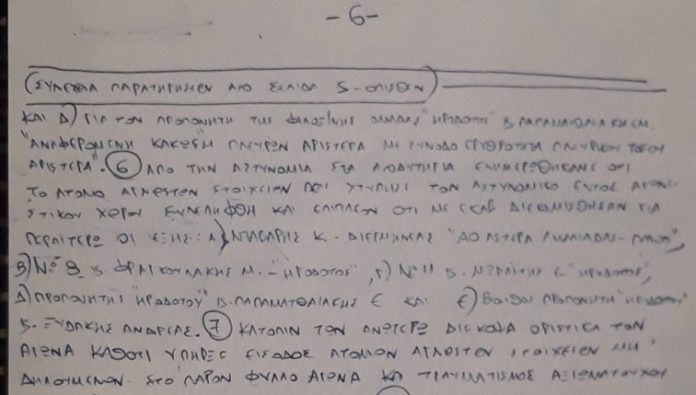 -6-
(ΣΥΝΕΧΕΙΑ ΠΑΡΑΤΗΡΗΣΕΩΝ ΑΠΟ ΣΕΛΙΔΑ 5-ΟΠΙΣΘΕΝ)
ΚΑΙ Δ) ΓΙΑ ΤΟΝ ΠΡΟΠΟΝΗΤΗ ΤΗΣ ΦΙΛΟΞΕΝΗΣ ΟΜΑΔΑΣ "ΗΡΟΔΟΤΟΥ" κ. ΠΑΠΑΜΑΤΘΑΙΑΚΗ ΕΜ.
"ΑΝΑΦΕΡΟΜΕΝΗ ΚΑΚΩΣΗ ΠΛΕΥΡΩΝ ΑΡΙΣΤΕΡΑ ΜΕ ΣΥΝΟΔΟ ΕΡΥΘΡΟΤΗΤΑ ΠΛΕΥΡΙΚΟΥ ΤΟΞΟΥ
ΑΡΙΣΤΕΡΑ". (6) ΑΠΟ ΤΗΝ ΑΣΤΥΝΟΜΙΑ ΣΤΑ ΑΠΟΔΥΤΗΡΙΑ ΕΝΗΜΕΡΩΘΗΚΑΜΕ ΟΤΙ
ΤΟ ΑΤΟΜΟ ΑΓΝΩΣΤΩΝ ΣΤΟΙΧΕΙΩΝ ΠΟΥ ΧΤΥΠΗΣΕ ΤΟΝ ΑΣΤΥΝΟΜΙΚΟ ΕΝΤΟΣ ΑΓΩΝΙ-
ΣΤΙΚΟΥ ΧΩΡΟΥ ΣΥΝΕΛΗΦΘΗ ΚΑΙ ΕΠΙΠΛΕΟΝ ΟΤΙ ΜΕ ΕΚΑΒ ΔΙΕΚΟΜΙΣΘΗΣΑΝ ΓΙΑ
ΠΕΡΑΙΤΕΡΩ ΟΙ ΕΞΗΣ: Α) Κ. ΔΙΕΡΜΗΝΕΑΣ "ΑΟ ΑΣΤΕΡΑ ΑΜΑΛΙΑΔΑΣ-
Β) Νο 8 κ. ΦΡΑΓΚΟΥΛΑΚΗΣ Μ. - "ΗΡΟΔΟΤΟΣ", Γ) Νο 11 κ. Ε. "ΗΡΟΔΟΤΟΣ",
Δ) ΠΡΟΠΟΝΗΤΗΣ "ΗΡΟΔΟΤΟΥ" κ. ΠΑΠΑΜΑΤΘΑΙΑΚΗΣ Ε ΚΑΙ Ε) ΒΟΗΘΟΣ ΠΡΟΠΟΝΗΤΗ "ΗΡΟΔΟΤΟΥ"
κ. ΞΥΔΑΚΗΣ ΑΝΔΡΕΑΣ. (7) ΚΑΤΟΠΙΝ ΤΩΝ ΑΝΩΤΕΡΩ ΔΙΕΚΟΨΑ ΟΡΙΣΤΙΚΑ ΤΟΝ
ΑΓΩΝΑ ΚΑΘΟΤΙ ΥΠΗΡΞΕ ΕΙΣΟΔΟΣ ΑΤΟΜΩΝ ΑΓΝΩΣΤΩΝ ΣΤΟΙΧΕΙΩΝ ΜΗ
ΔΗΛΟΥΜΕΝΩΝ ΣΤΟ ΠΑΡΟΝ ΦΥΛΛΟ ΑΓΩΝΑ ΚΑΙ ΤΡΑΥΜΑΤΙΣΜΟΣ ΑΞΙΩΜΑΤΟΥΧΟΥ